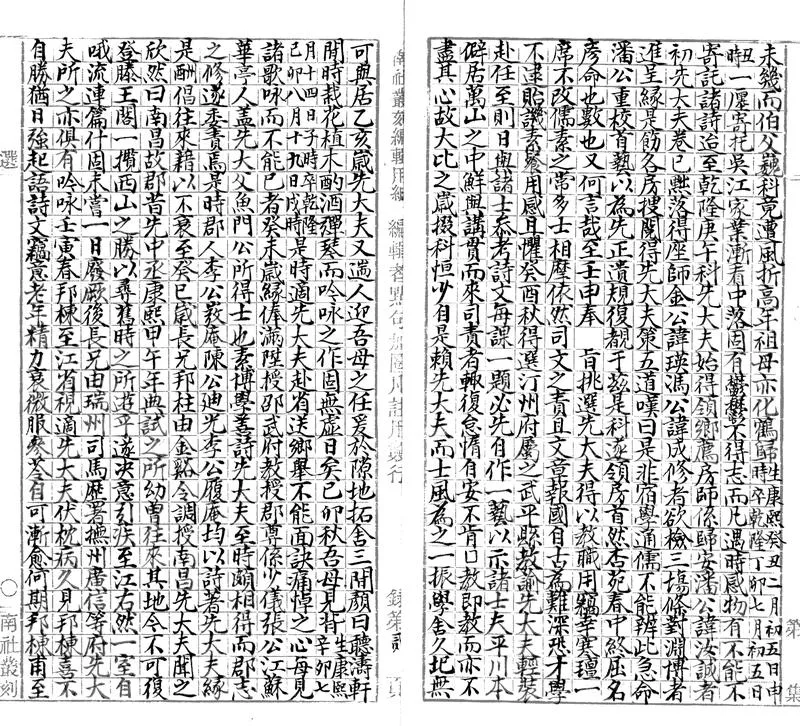 第　集
未幾而伯父巍科竟遭風折高年祖母亦化鶴歸生康熙癸丑二月初五日申時卒乾隆丁卯七月初五日
丑時一廛寄托吳江家業漸看中落固有鬱鬱不得志而凡遇時感物有不能不
寄託諸詩詒至乾隆庚午科先大夫始得領鄉薦房師係歸安潘公諱汝誠者
初先大夫卷已黜落得座師金公諱瑛馮公諱成修者欲檢三場條對淵博者
進呈緣是飭各房搜閱得先大夫策五道嘆曰是非宿學通儒不能辨此急命
潘公重校首藝以為先正遺規復覩于茲是科遂領房首然杏苑春中終屈名
彥命也數也又何言哉至壬申奉　旨挑選先大夫得以教職用竊幸寒壇一
席不改儒素之常多士相摩依然司文之責且文章報國自古為難深恐才學
不逮貽譏素餐用感且懼癸酉秋得選汀州府屬之武平縣教諭先大夫輕裝
赴任至則日與諸士參考詩文每課一題必先自作一藝以示諸士夫平川本
僻居萬山之中鮮與講貫而來司責者輒復怠惰自安不肯口教即教而亦不
盡其心故大比之歲掇科恒少自是賴先大夫而士風為之一振學舍久圮無
南社叢刻編輯用紙　編輯者點句加圈用註用雙行　錄第　頁
可與居乙亥歲先大夫又遄人迎吾母之任爰於隙地拓舍三間顏曰聽濤軒
閒時栽花植木酌酒彈琴而吟詠之作固無虛日矣己卯秋吾母見背生康熙辛卯七
月十四日子時卒乾隆己卯八月十九日戌時是時適先大夫赴省送鄉舉不能面訣痛悼之心每見
諸歌詠而不能已者癸未歲緣俸滿陞授邵武府教授郡尊係少儀張公江蘇
華亭人蓋先大父魚門公所得士也素博學善詩先大夫至時頗相得而郡志
之修遂委責焉是時郡人李公敦庵陳公迪光李公履庵均以詩著先大夫緣
是酬倡往來藉以不衰至癸巳歲長兄邦柱由金谿令調授南昌先大夫聞之
欣然曰南昌故郡昔先中丞康熙甲午年典試之所幼曾往來其地今不可復
登滕王閣一攬西山之勝以尋舊時之所遊乎遂決意引疾至江右然一室自
哦流連篇什固未嘗一日廢厥後長兄由瑞州司馬歷署撫州廣信等府先大
夫所之亦俱有吟詠壬寅春邦棟至江省視適先大夫伏枕病久見邦棟喜不
自勝猶日強起語詩文竊意老年精力衰微服參苓自可漸愈何期邦棟甫至
選　〇　南社叢刻